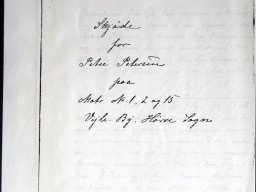 Skjøde
for
Peter Petersen
paa
Matr № 1, 2 og 15
Vejle By. Hørve Sogn